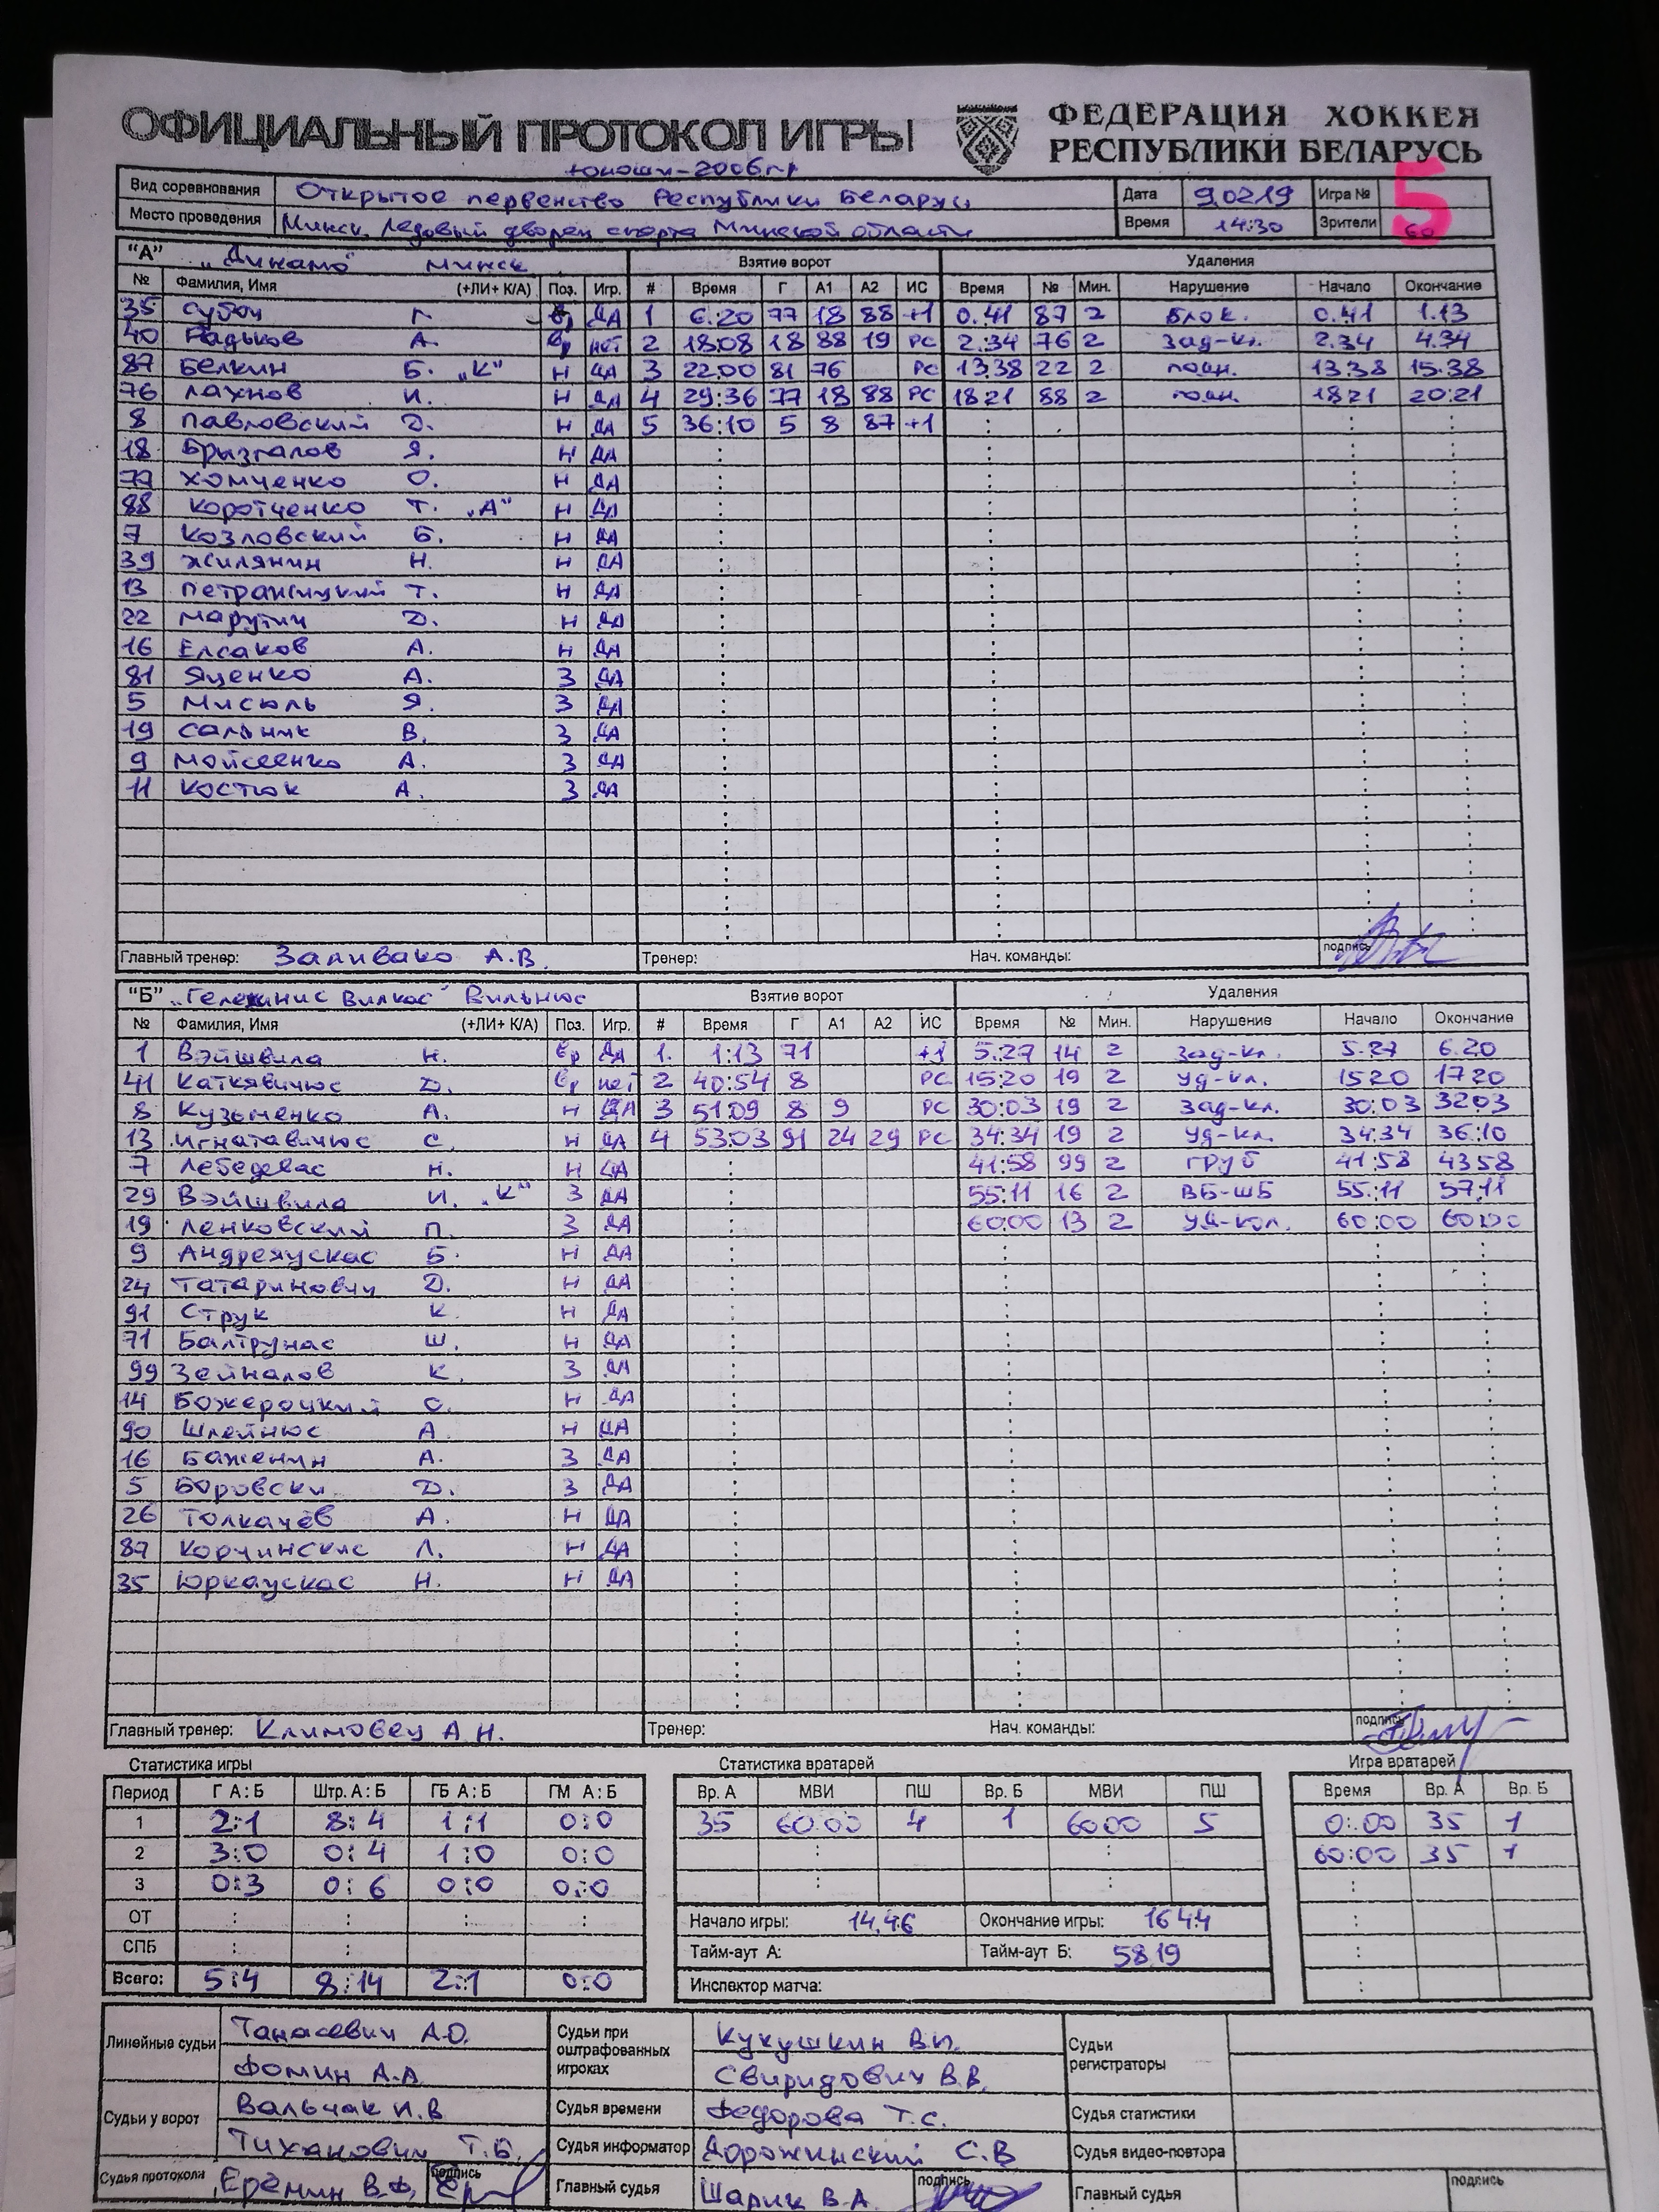 ОФИЦИАЛЬНЫЙ ПРОТОКОЛ ИГРЫ ФЕДЕРАЦИЯ ХОККЕЯ РЕСПУБЛИКИ БЕЛАРУСЬ
юноши-2006 г.р
Вид соревнования Открытое первенство Республики Беларусь Дата 9.02.19 Игра № 5
Место проведения Минск, Ледовый дворец спорта Минской области Время 14:30 Зрители 60
"А" „Динамо" Минск Взятие ворот Удаления
№ Фамилия, Имя (+ЛИ+ К/А) Поз. Игр. # Время Г А1 А2 ИС Время № Мин. Нарушение Начало Окончание
35 Субоч Г. Вр ДА 1 6:20 77 18 88 +1 0:41 87 2 Блок. 0:41 1:13
40 Радьков А. Вр нет 2 18:08 18 88 19 РС 2:34 76 2 Зад-кл. 2:34 4:34
87 Белкин Б. „К" Н ДА 3 22:00 81 76 РС 13:38 22 2 подн. 13:38 15:38
76 Лахнов И. Н ДА 4 29:36 77 18 88 РС 18:21 88 2 подн. 18:21 20:21
8 Павловский Д. Н ДА 5 36:10 5 8 87 +1
18 Брызгалов Я. Н ДА
77 Хомченко О. Н ДА
88 Коротченко Т. „А" Н ДА
7 Козловский Б. Н ДА
39 Жилянин Н. Н ДА
13 Петраницкий Т. Н ДА
22 Марутич Д. Н ДА
16 Елсаков А. Н ДА
81 Яценко А. З ДА
5 Мисюль Я. З ДА
19 Сальник В. З ДА
9 Мойсеенко А. З ДА
11 Костюк А. З ДА
Главный тренер: Заливако А.В. Тренер: Нач. команды: подпись
"Б" „Гележинис Вилкас" Вильнюс Взятие ворот Удаления
№ Фамилия, Имя (+ЛИ+ К/А) Поз. Игр. # Время Г А1 А2 ИС Время № Мин. Нарушение Начало Окончание
1 Вэйшвила Н. Вр ДА 1. 1:13 71 +1 5:27 14 2 Зад-кл. 5:27 6:20
41 Каткявичюс Д. Вр нет 2 40:54 8 РС 15:20 19 2 Уд-кл. 15:20 17:20
8 Кузьменко А. Н ДА 3 51:09 8 9 РС 30:03 19 2 Зад-кл. 30:03 32:03
13 Игнатавичюс С. Н ДА 4 53:03 91 24 29 РС 34:34 19 2 Уд-кл. 34:34 36:10
7 Лебедевас Н. Н ДА 41:58 99 2 ГРУБ 41:58 43:58
29 Вэйшвила И. „К" З ДА 55:11 16 2 ВБ-ШБ 55:11 57:11
19 Ленковский П. З ДА 60:00 13 2 Уд-кол. 60:00 60:00
9 Андреяускас Б. Н ДА
24 Татаринович Д. Н ДА
91 Струк К. Н ДА
71 Балтрунас Ш. Н ДА
99 Зейналов К. З ДА
14 Божероцкий О. Н ДА
90 Шлейнюс А. Н ДА
16 Баженин А. З ДА
5 Боровски Д. З ДА
26 Толкачёв А. Н ДА
87 Корчинскис Л. Н ДА
35 Юркаускас Н. Н ДА
Главный тренер: Климовец А.Н. Тренер: Нач. команды: подпись
Статистика игры Статистика вратарей Игра вратарей
Период Г А : Б Штр. А : Б ГБ А : Б ГМ А : Б Вр. А МВИ ПШ Вр. Б МВИ ПШ Время Вр. А Вр. Б
1 2:1 8:4 1:1 0:0 35 60:00 4 1 60:00 5 0:00 35 1
2 3:0 0:4 1:0 0:0 60:00 35 1
3 0:3 0:6 0:0 0:0
ОТ Начало игры: 14.46 Окончание игры: 16 44
СПБ Тайм-аут А: Тайм-аут Б: 58 19
Всего: 5:4 8:14 2:1 0:0 Инспектор матча:
Линейные судьи Танасевич А.О. Судьи при оштрафованных игроках Кукушкин В.И. Судьи регистраторы
Фомин А.А. Свиридович В.В.
Судьи у ворот Вальчак И.В Судья времени Федорова Т.С. Судья статистики
Тиханович Т.Б. Судья информатор Дорожинский С.В Судья видео-повтора
Судья протокола Ерёмин В.Ф. подпись Главный судья Шарик В.А подпись Главный судья подпись